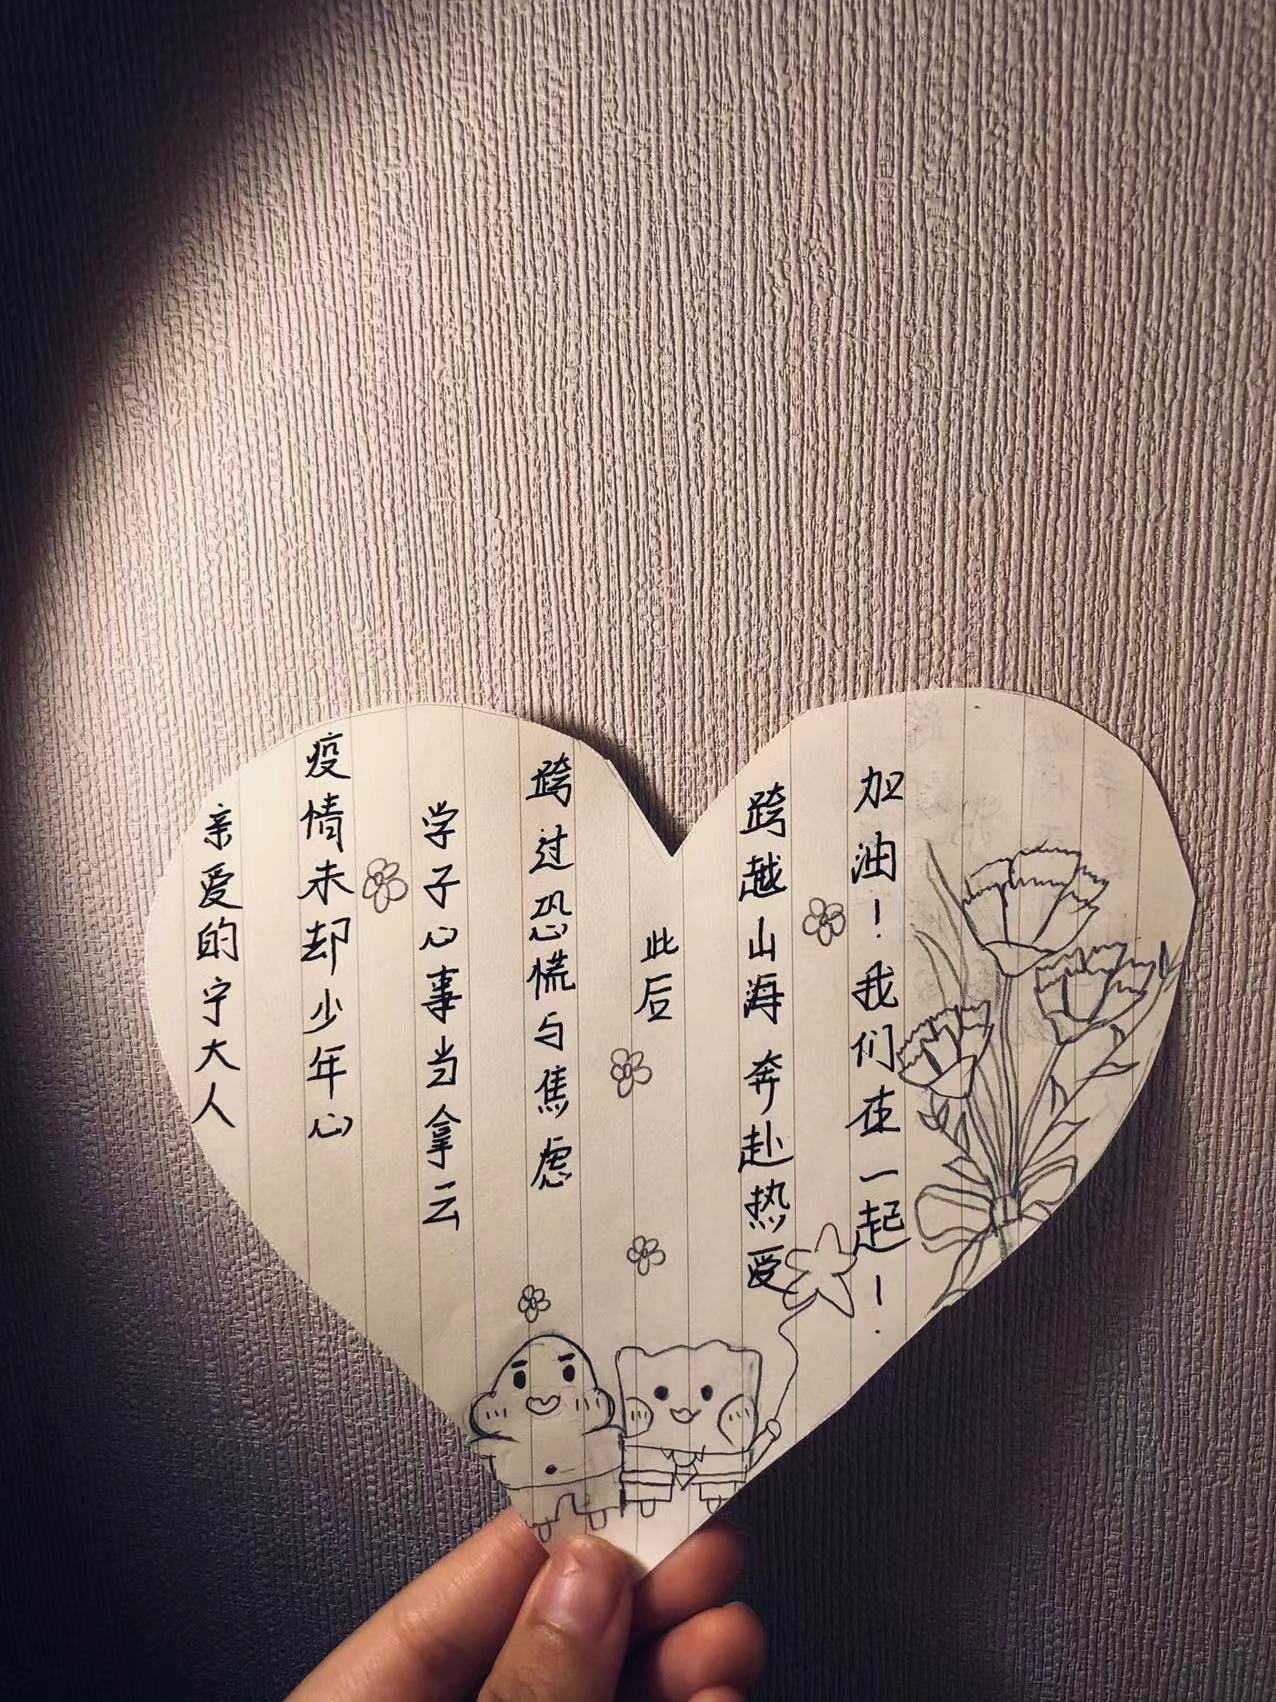 亲爱的宁大人
疫情未却少年心
学子心事当拿云
跨过恐慌与焦虑
此后
跨越山海 奔赴热爱
加油！我们在一起！